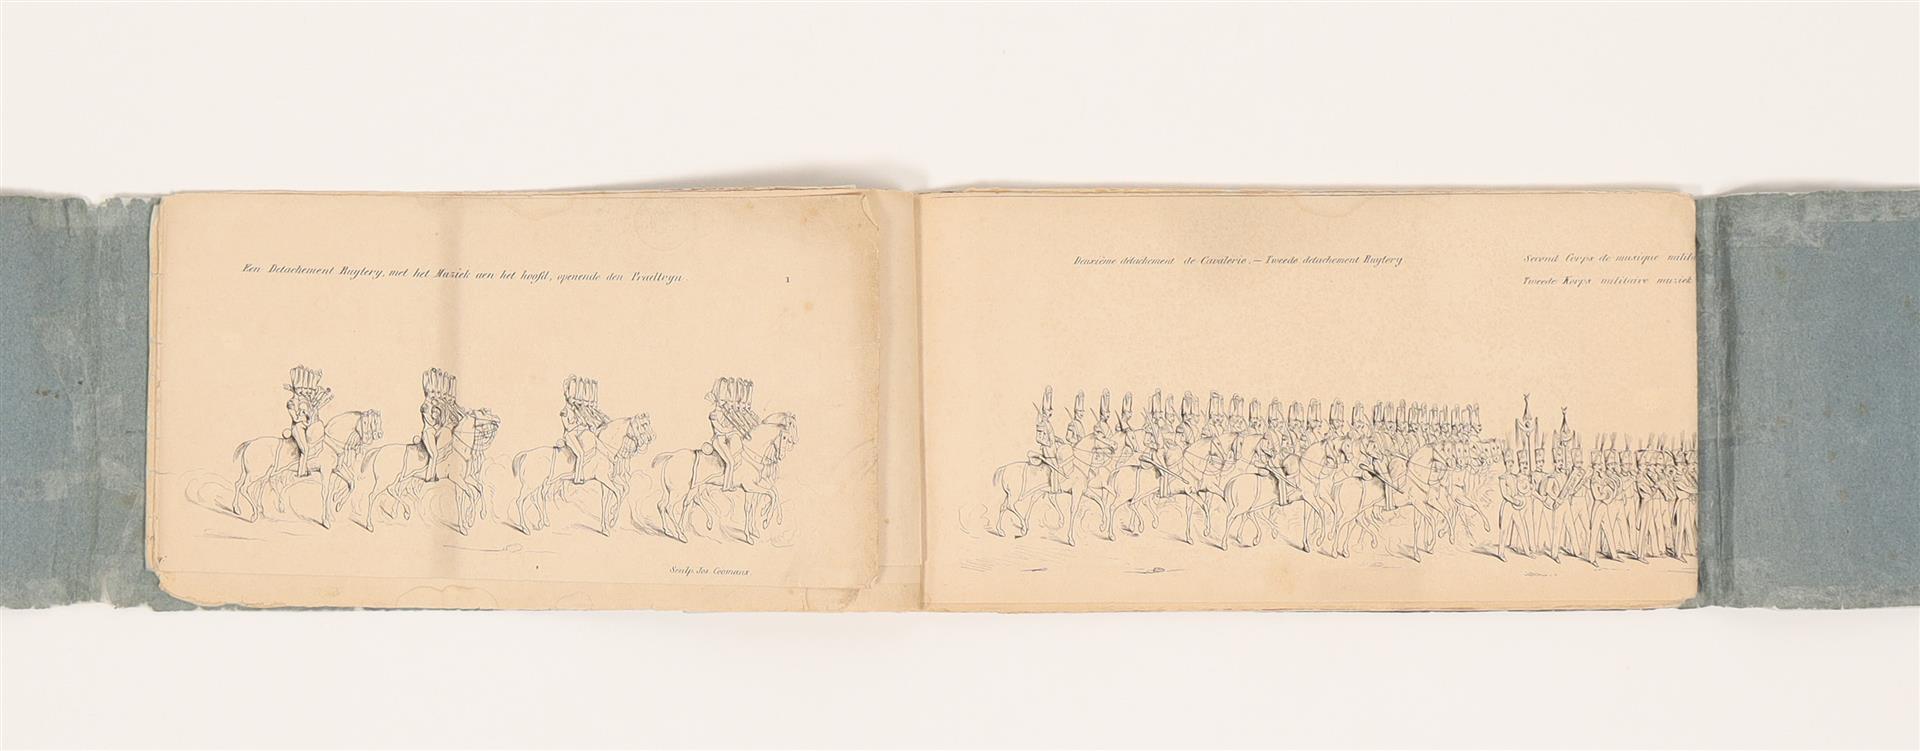 Een Detachement Ruytery, met het Muziek aen het hoofd, openende den Praeltryn.
1
1
Sculp. Jos Coomans.
Deuxième détachement de Cavalerie. — Tweede detachement Ruytery
Second Corps de musique milita
Tweede Korps militaire muziek